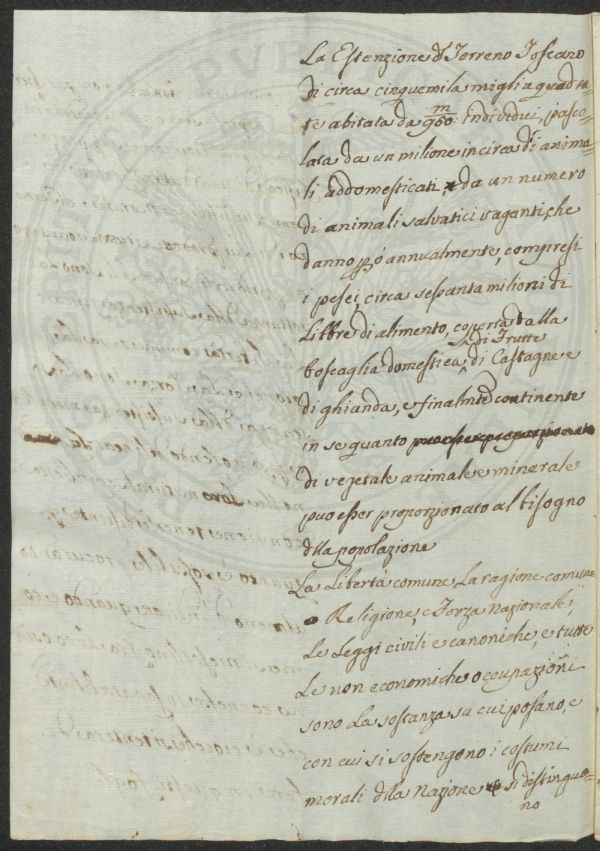 La Estenzione d Terreno Toscano
di circa cinquemila miglia quadra-
te abitata da 950: m individui, pasco-
lata da un milione in circa di anima-
li addomesticati e da un numero
di animali salvatici vaganti, che
danno p ò annualmente, compresi
i pesci, circa sessanta milioni di
Libbre di alimento, coperta dalla
boscaglia domestica, di Frutte di Castagne e
di ghianda, e finalmte continente
in se quanto
di vegetale animale e minerale
puo esser proporzionato al bisogno
dlla popolazione
La Libertà comune La ragione comune
Religione, e Forza Nazionale,
Le Leggi civili e canoniche, e tutte
Le non economiche occupazioni
sono La sostanza su cui posano, e
con cui si sostengono i costumi
morali dlla Nazione si distinguo-
no